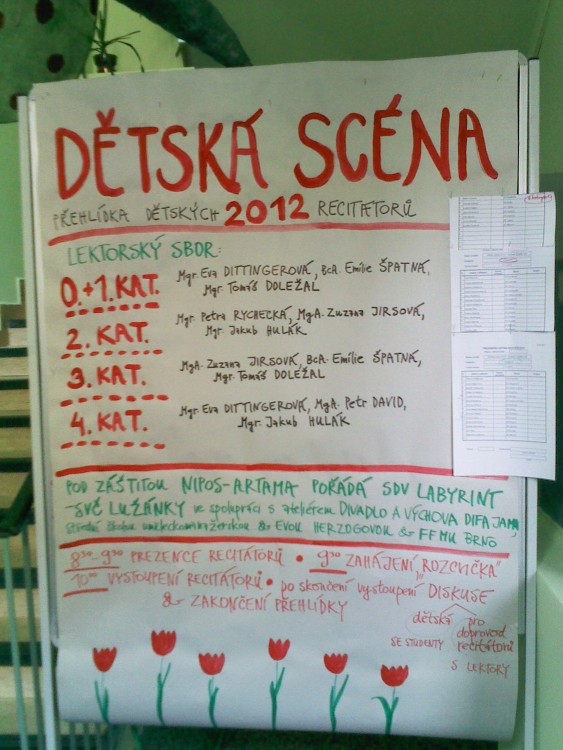 DĚTSKÁ SCÉNA
PŘEHLÍDKA DĚTSKÝCH 2012 RECITÁTORŮ
LEKTORSKÝ SBOR:
0.+1. KAT. Mgr. Eva DITTINGEROVÁ, BcA. Emílie ŠPATNÁ,
Mgr. Tomáš DOLEŽAL
2. KAT. Mgr. Petra RYCHECKÁ, MgA. Zuzana JIRSOVÁ,
Mgr. Jakub HULÁK
3. KAT. MgA. Zuzana JIRSOVÁ, BcA. Emílie ŠPATNÁ,
Mgr. Tomáš DOLEŽAL
4. KAT. Mgr. Eva DITTINGEROVÁ, MgA. Petr DAVID,
Mgr. Jakub HULÁK
POD ZÁŠTITOU NIPOS-ARTAMA POŘÁDÁ SDV LABYRINT
-SVČ LUŽÁNKY ve spolupráci s ateliérem DIVADLO A VÝCHOVA DIFA JAMU,
Střední školou uměleckomanažerskou & EVOU HERZOGOVOU & FFMU BRNO
8³⁰-9³⁰ PREZENCE RECITÁTORŮ • 9³⁰ ZAHÁJENÍ „ROZCVIČKA"
10⁰⁰ VYSTOUPENÍ RECITÁTORŮ • po skončení vystoupení DISKUSE
& ZAKONČENÍ PŘEHLÍDKY
dětská pro
SE STUDENTY doprovod
recitátorů
S LEKTORY